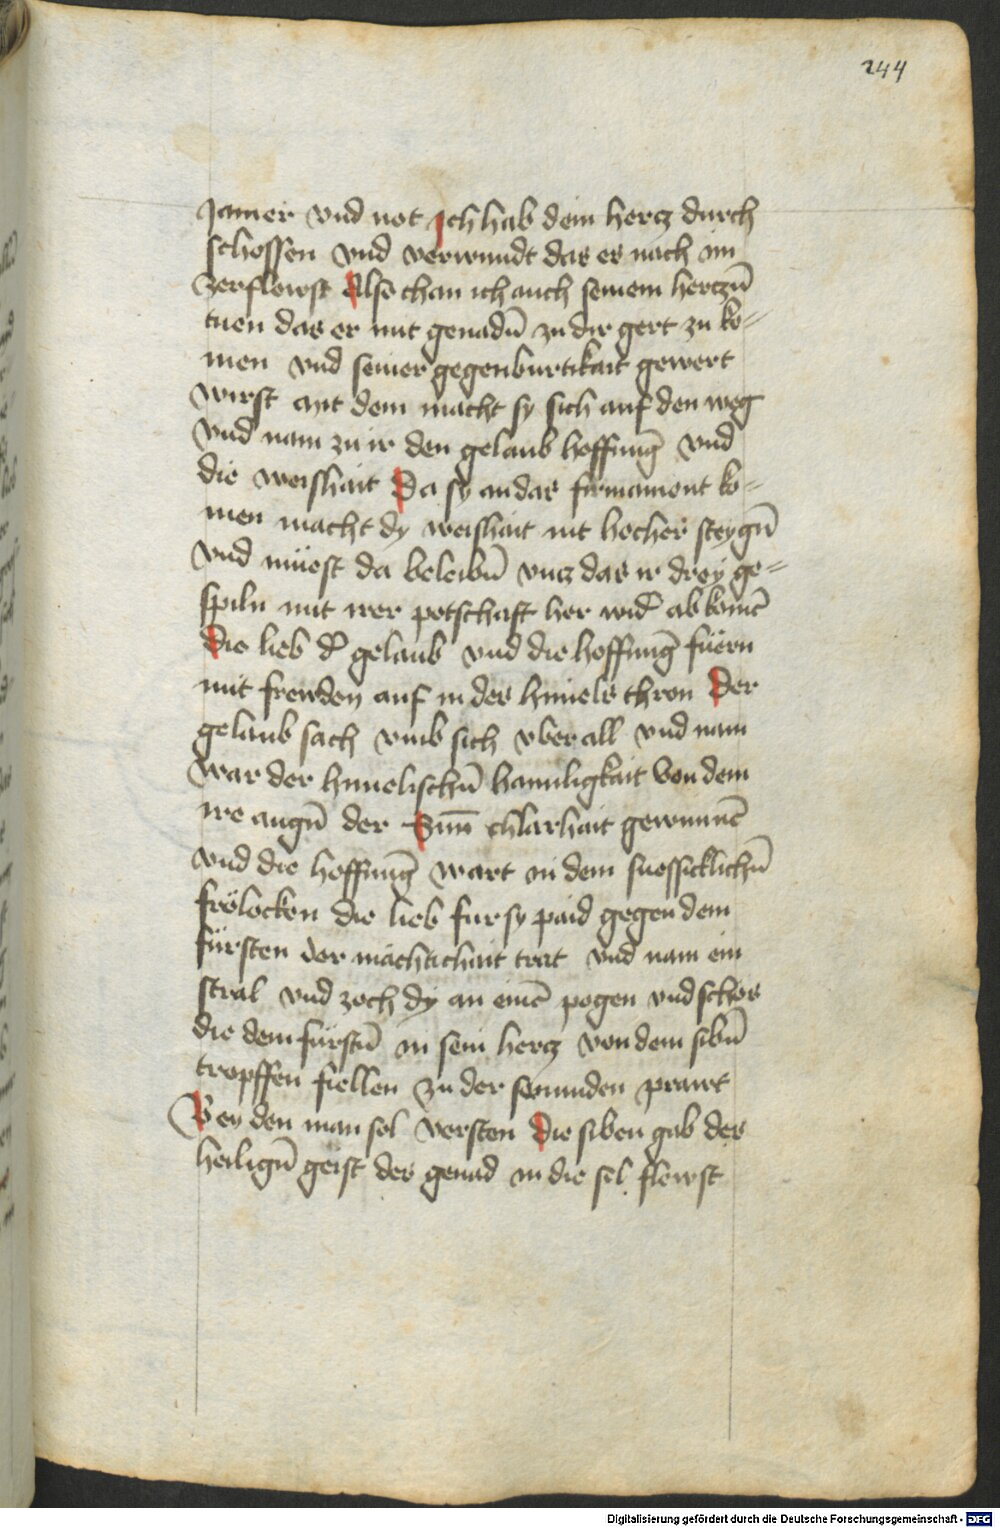 244
Jamer vnd not Ich hab dein hercz durch
schossen vnd verwundt das es nach im
zerflewst Also chan ich auch seinem herczn̄
tuen das er mit genadn̄ zu dir gert zu ko=
men vnd seiner gegenburtikait gewert
wirst Mit dem macht sy sich auf den weg
vnd nam zu ir den gelaub hoffnunḡ vnd
die weishait Da sy an das firmament ko=
men macht dy weishait nit hocher steygn̄
vnd müest da beleibn̄ vncz das ir drey ge=
spiln mit irer potschaft her wid̄ ab komē
Die lieb d̄ gelaub vnd die hoffnunḡ füern
mit frewden auf in des himels thron Der
gelaub sach vmb sich vber all vnd nam
war der himelischn̄ hamligkait von dem
ire augn̄ der Sunn̄ chlarhait gewunnē
vnd die hoffnunḡ wart in dem suessicklichn̄
frölocken die lieb fur sy paid gegen dem
fürsten der mächtichait trat vnd nam ein
stral vnd zoch dy an einē pogen vnd schos
die dem fürstn̄ in sein hercz von dem sibn̄
tropffen fiellen zu der wunden prawt
Bey den man sol versten Die siben gab des
heilign̄ geist des genad in die sel flewst
Digitalisierung gefördert durch die Deutsche Forschungsgemeinschaft - DFG